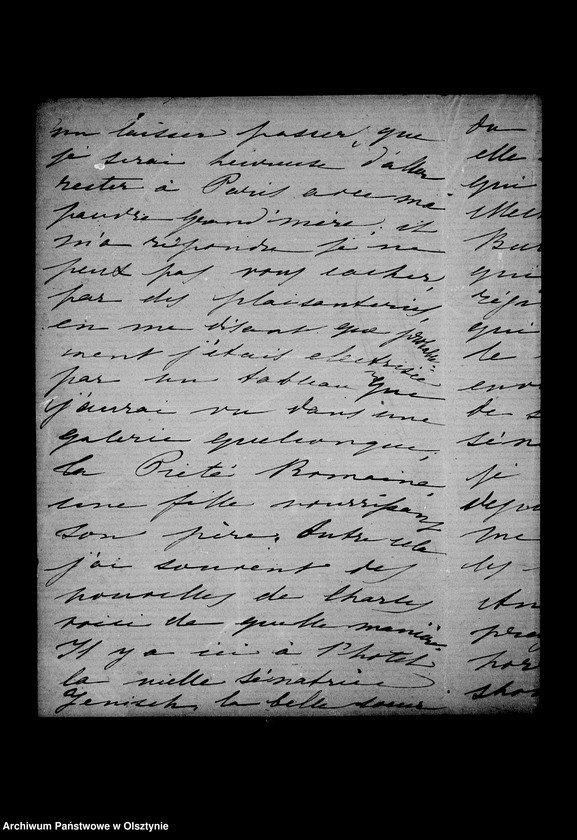 un laisser passer, que
je serai heureuse d'aller
rester à Paris avec ma
pauvre grand'mère, et
m'a répondu je ne
peux pas vous cacher,
par des plaisanteries
en me disant que probable-
ment j'étais electrisée
par un tableau que
j'aurai vu dans une
galerie quelconque,
la Pieté Romaine
une fille nourrissant
son père. Outre cela
j'ai souvent des
nouvelles de Charles
voici de quelle maniè-
Il y a ici à l'hotel
la vieille sénatrice
Jenisch, la belle soeur
da
elle
qui
Meck
qui
régi
qui
de
env
de s
séna
je
depu
me
les
An
pra
hor
Archiwum Państwowe w Olsztynie